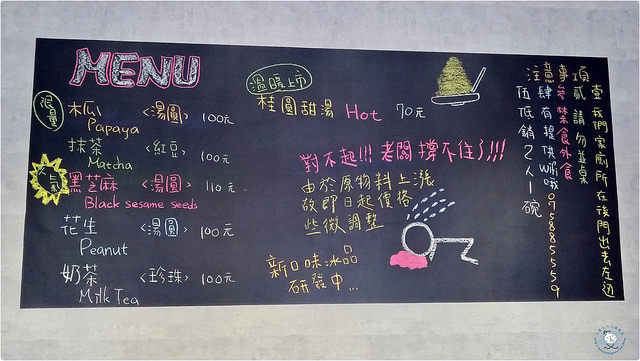 MENU
限量
木瓜 <湯圓> 100元
Papaya
抹茶 <紅豆> 100元
Matcha
人氣
黑芝麻 <湯圓> 110元
Black sesame seeds
花生 <湯圓> 100元
Peanut
奶茶 <珍珠> 100元
Milk Tea
溫暖上市
桂圓甜湯 Hot 70元
對不起!!! 老闆撐不住了!!!
由於原物料上漲
故即日起價格
些微調整
新口味冰品
研發中...
注意事項
壹我們家廁所在後門出去左邊
貳請勿並桌
參禁食外食
肆有提供Wifi哦 075885559
伍低銷2人1碗